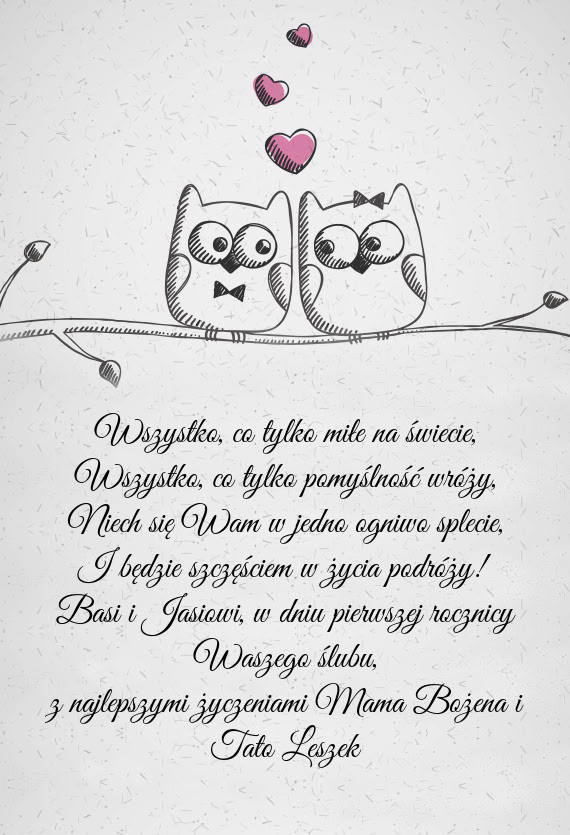 Wszystko, co tylko miłe na świecie,
Wszystko, co tylko pomyślność wróży,
Niech się Wam w jedno ogniwo splecie,
I będzie szczęściem w życia podróży!
Basi i Jasiowi, w dniu pierwszej rocznicy
Waszego ślubu,
z najlepszymi życzeniami Mama Bożena i
Tato Leszek